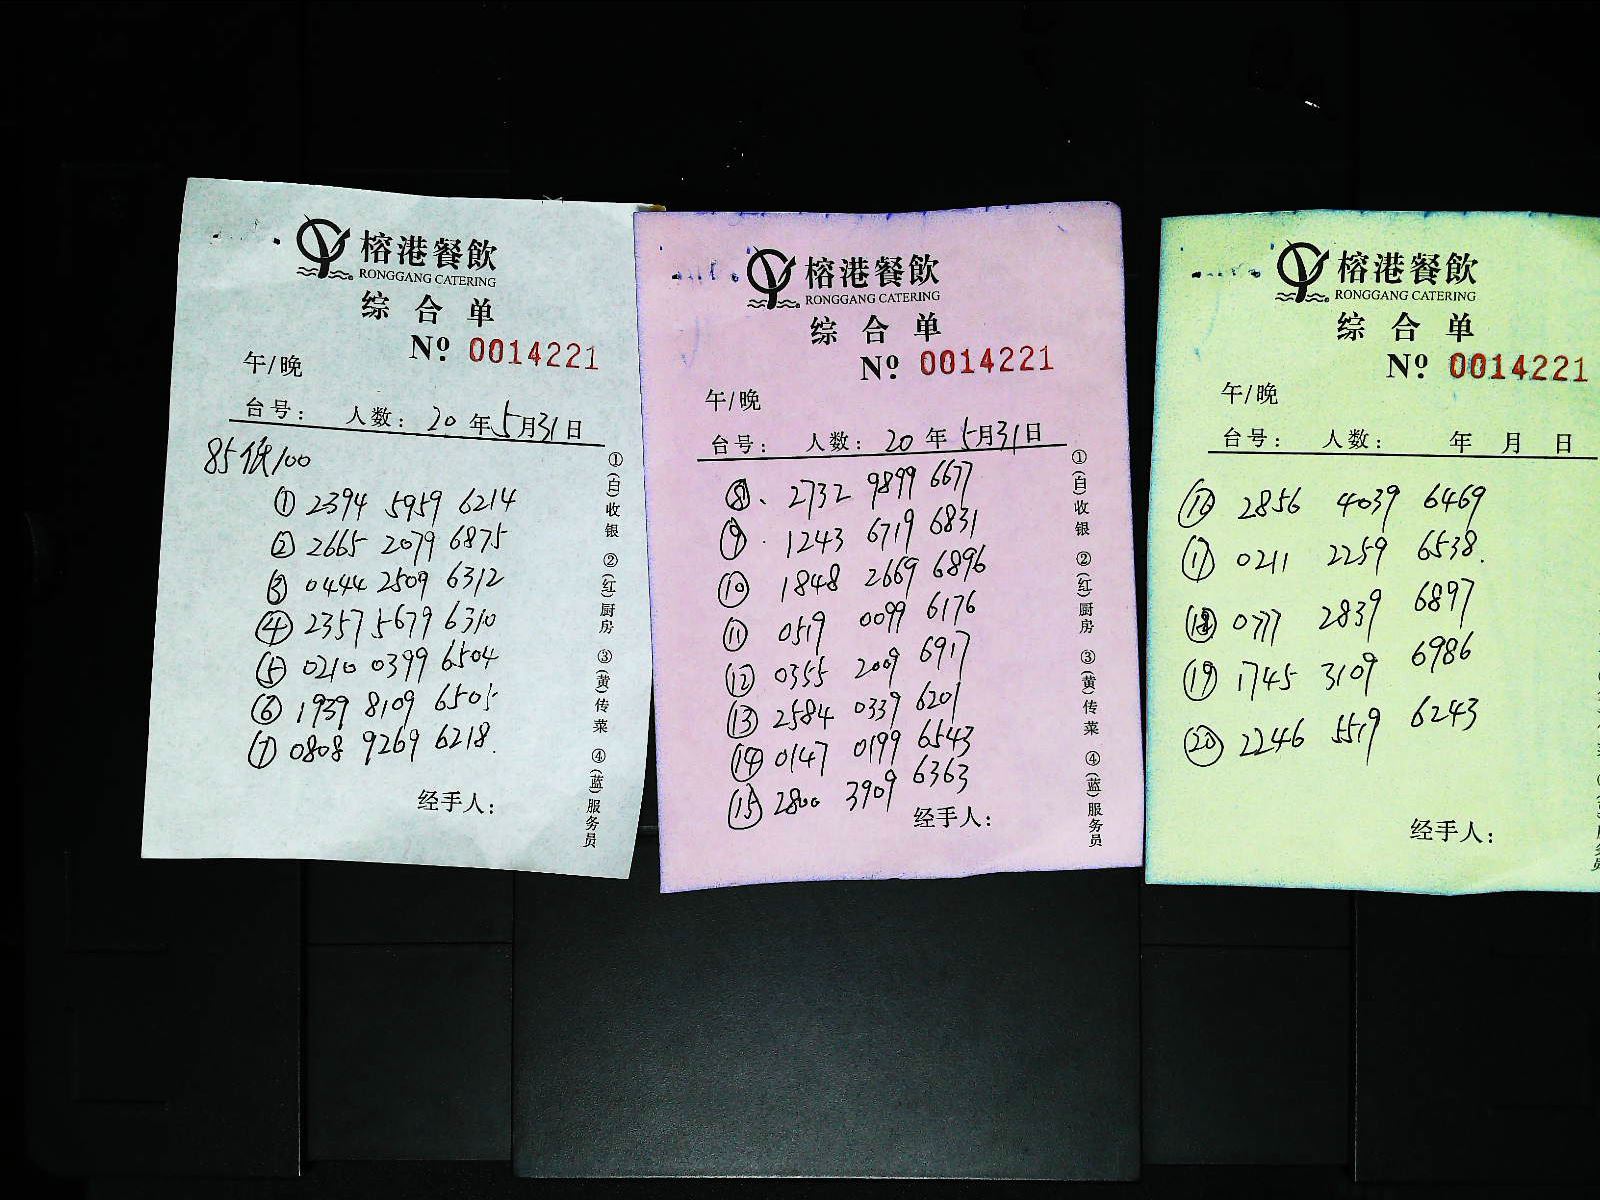 榕港餐飲
RONGGANG CATERING
综合单
Nº 0014221
午/晚
台号： 人数： 20 年 5月31日
85低100
① 2394 5959 6214
② 2665 2079 6875
③ 0444 2509 6312
④ 2357 5679 6310
⑤ 0210 0399 6504
⑥ 1939 8109 6505
⑦ 0808 9269 6218.
经手人：
①(白)收银 ②(红)厨房 ③(黄)传菜 ④(蓝)服务员
榕港餐飲
RONGGANG CATERING
综合单
Nº 0014221
午/晚
台号： 人数： 20 年 5月31日
⑧. 2732 9899 6677
⑨. 1243 6719 6831
⑩ 1848 2669 6896
⑪ 0519 0099 6176
⑫ 0355 2009 6917
⑬ 2584 0339 6201
⑭ 0147 0199 6543
⑮ 2800 3909 6363
经手人：
①(白)收银 ②(红)厨房 ③(黄)传菜 ④(蓝)服务员
榕港餐飲
RONGGANG CATERING
综合单
Nº 0014221
午/晚
台号： 人数： 年 月 日
⑯ 2856 4039 6469
⑰ 0211 2259 6538.
⑱ 0777 2839 6897
⑲ 1745 3109 6986
⑳ 2246 5519 6243
经手人：